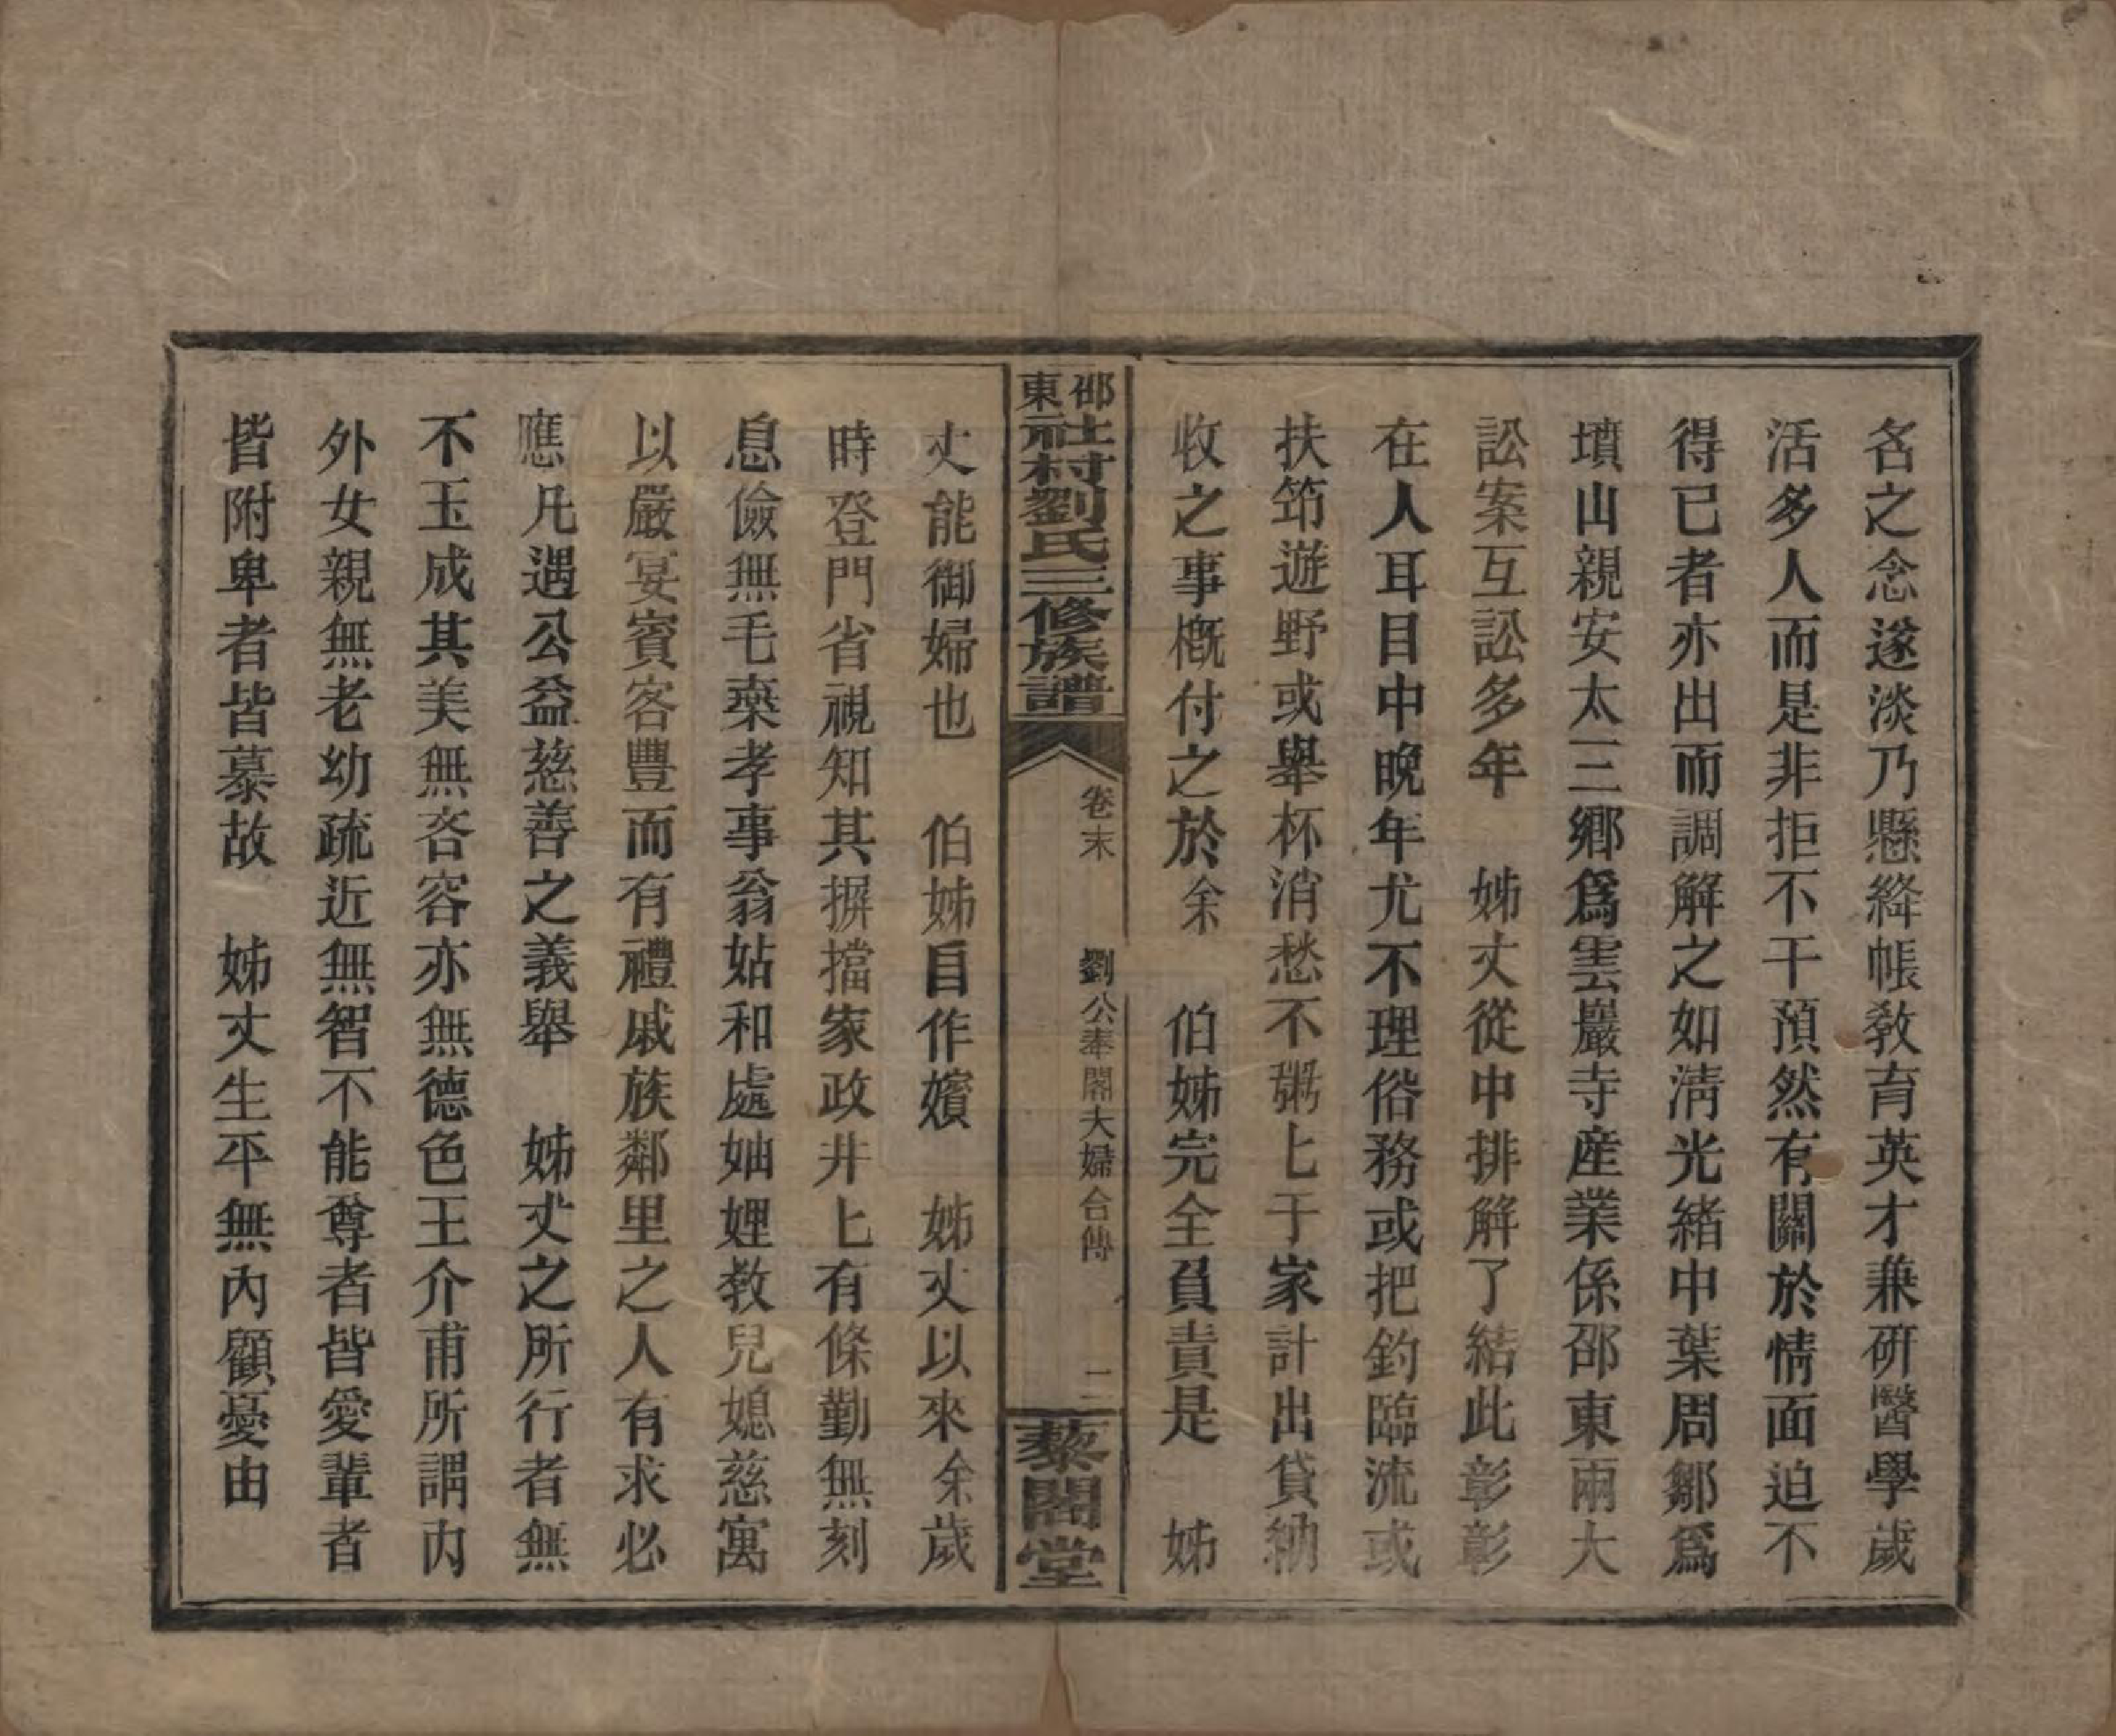 名之念遂淡乃懸絳帳教育英才兼研醫學歲
活多人而是非拒不干預然有關於情面迫不
得已者亦出而調解之如清光緒中葉周鄒爲
墳山親安太三鄉爲雲巖寺產業係邵東兩大
訟案互訟多年　姊丈從中排解了結此彰彰
在人耳目中晚年尤不理俗務或把釣臨流或
扶筇遊野或舉杯消愁不粥上于家計出貸納
收之事槪付之於余　伯姊完全負責是　姊
邵東社村劉氏三修族譜
卷末　劉公奉閣大婦合傳　二
藜閣堂
丈能御婦也　伯姊自作嬪　姊丈以來余歲
時登門省視知其摒擋家政井上有條勤無刻
息儉無毛棄孝事翁姑和處妯娌教兒媳慈寓
以嚴宴賓客豐而有禮戚族鄰里之人有求必
應凡遇公益慈善之義舉　姊丈之所行者無
不玉成其美無吝容亦無德色王介甫所謂內
外女親無老幼疏近無智不能尊者皆愛輩者
皆附卑者皆慕故　姊丈生平無內顧憂由